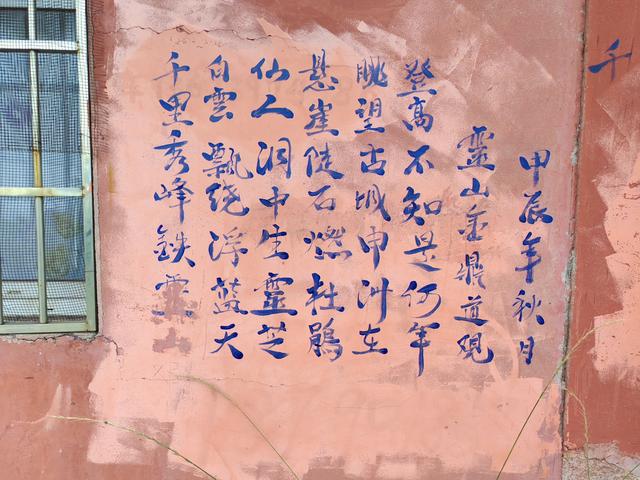 千
甲辰年秋月
靈山金鼎道观
登高不知是何年
眺望古城申州在
悬崖陡石燃杜鹃
仙人洞中生靈芝
白雲飘绕浮蓝天
千里秀峰鉄靈山